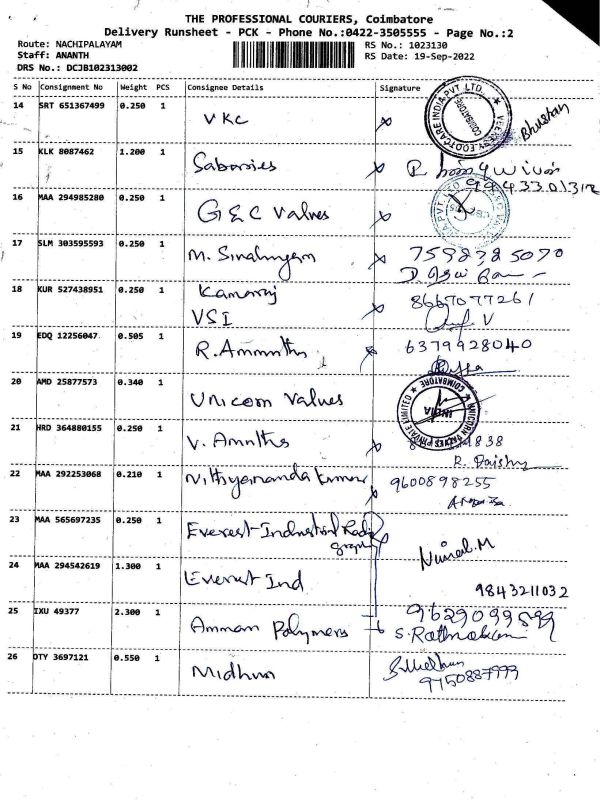 THE PROFESSIONAL COURIERS, Coimbatore
Delivery Runsheet - PCK - Phone No.:0422-3505555 - Page No.:2
Route: NACHIPALAYAM RS No.: 1023130
Staff: ANANTH RS Date: 19-Sep-2022
DRS No.: DCJB102313002
S No Consignment No Weight PCS Consignee Details Signature
14 SRT 651367499 0.250 1 VKC Bhushan
15 KLK 8087462 1.200 1 Sabaries
9443301312
16 MAA 294985280 0.250 1 G&C Valves
17 SLM 303595593 0.250 1 M. 7598785070
18 KUR 527438951 0.250 1 Kamaraj 8667077261
VSI
19 EDQ 12256047 0.505 1 R. 6379928040
20 AMD 25877573 0.340 1 Unicorn Valves
COIMBATORE
INDIA
21 HRD 364880155 0.250 1 V. 838
22 MAA 292253068 0.210 1 Nithyananda Kumar 9600898255
23 MAA 565697235 0.250 1 Everest Industrial Radio
graphy
Nirmal.M
24 MAA 294542619 1.300 1 Everest Ind 9843211032
25 IXU 49377 2.300 1 Amman Polymers
26 OTY 3697121 0.550 1 Midhun
9750887999